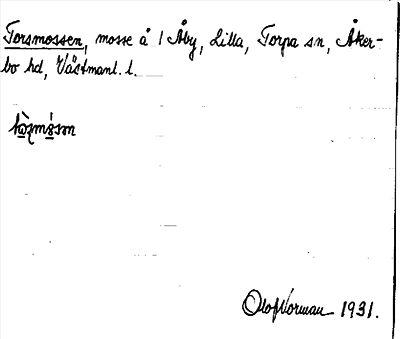 Torsmossen, mosse å 1 Åby, Lilla, Torpa sn, Åker-
bo hd, Västmanl. l.
Olof Norman 1931.